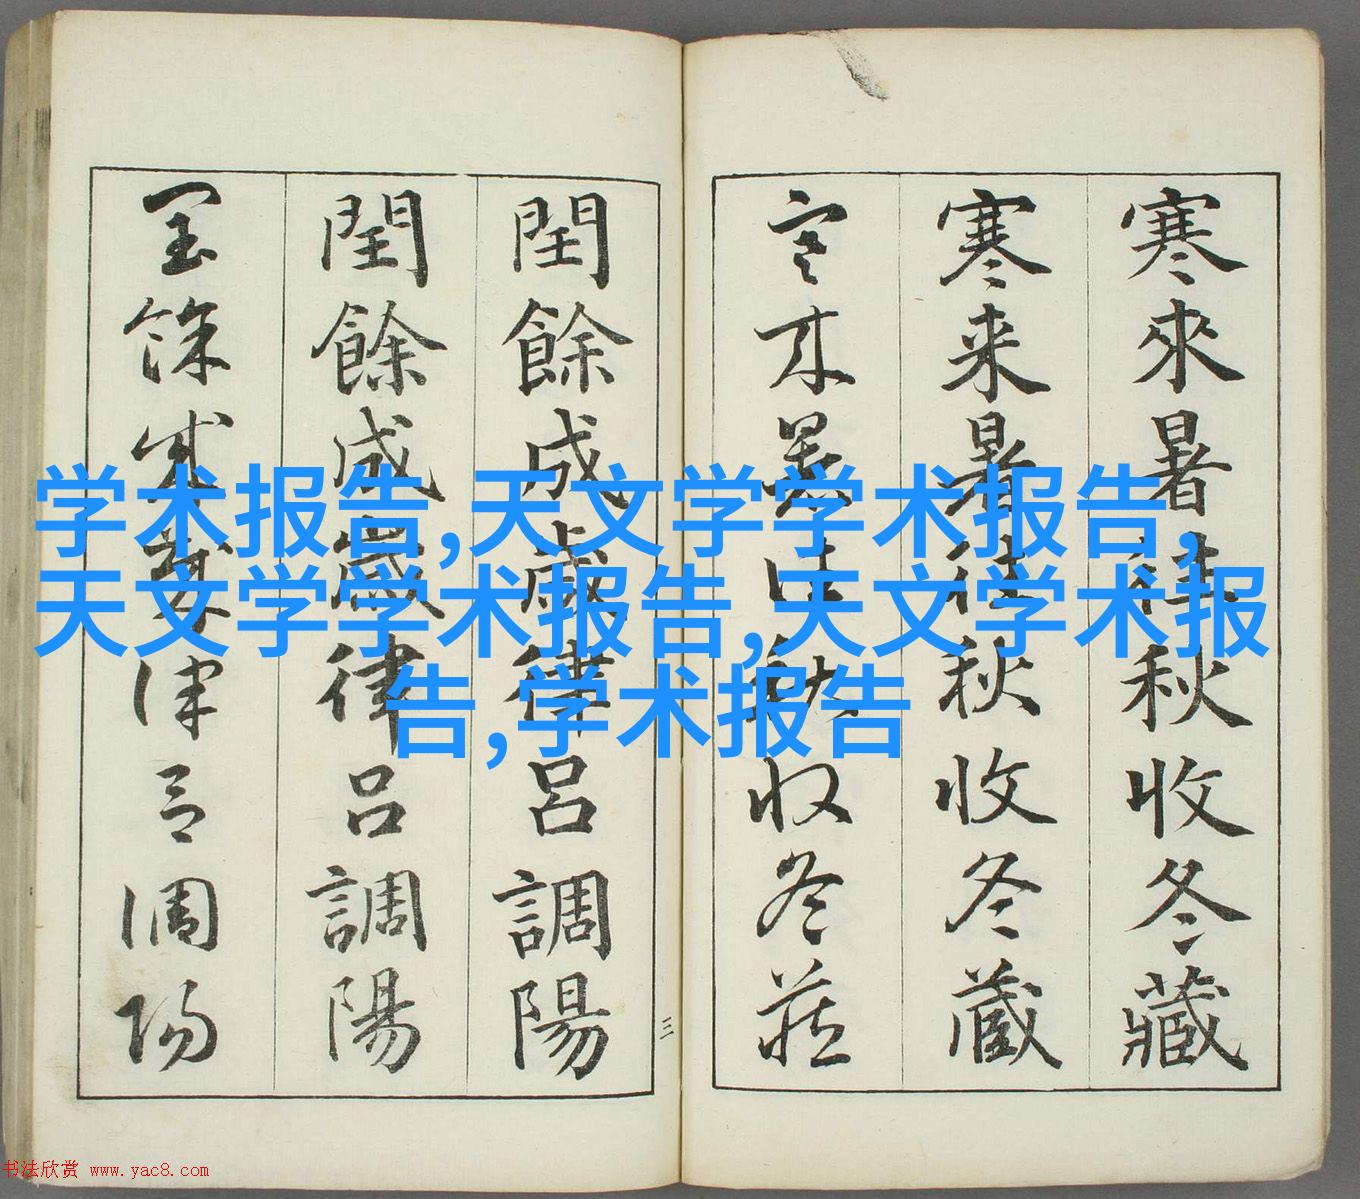 寒來暑往秋收冬藏
寒来暑往秋收冬蔵
寒来暑往秋收冬藏
閏餘成歲律呂調陽
閏餘成歲律呂調陽
閏餘成歲律呂調陽
三
学术报告,天文学学术报告,
天文学学术报告,天文学术报
告,学术报告
书法欣赏 www.yac8.com